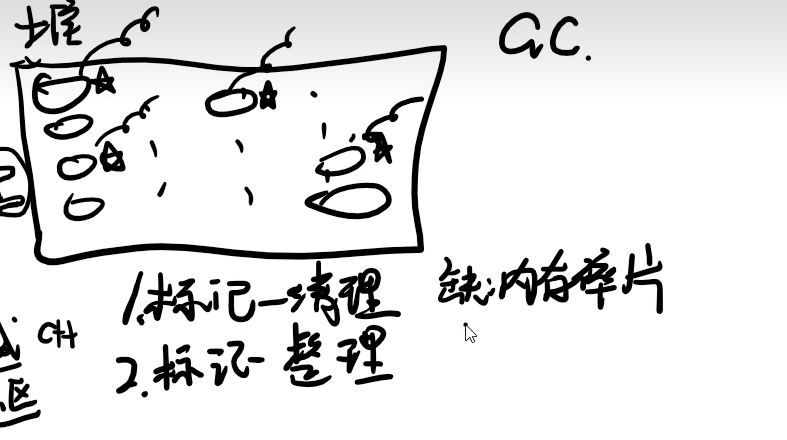 堆
GC.
1.标记-清理 缺:内存碎片
2.标记-整理
区